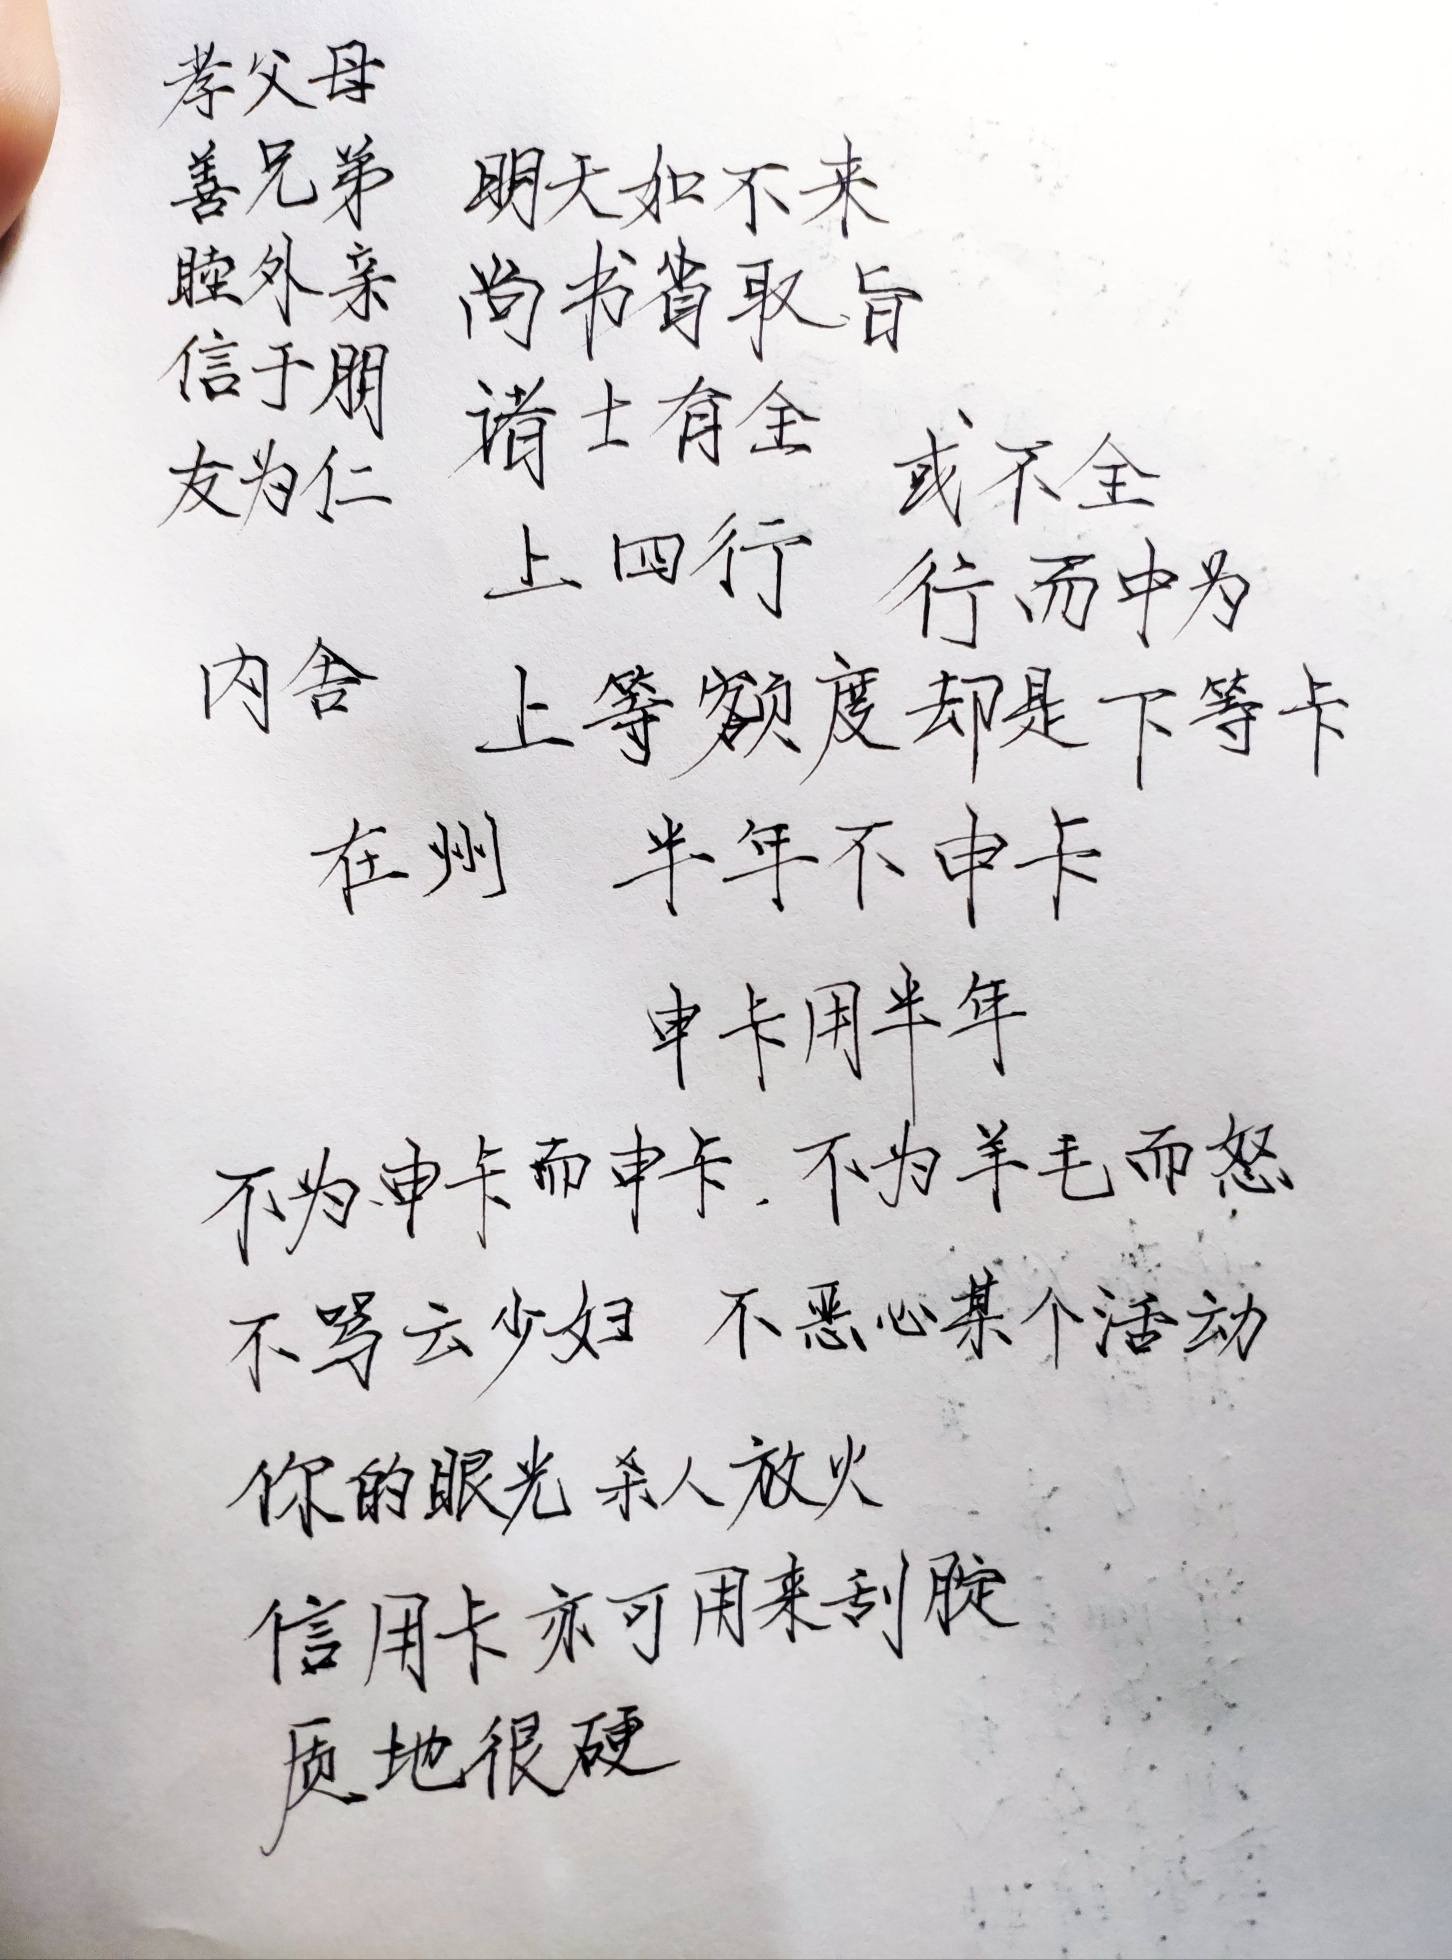 孝父母
善兄弟
睦外亲
信于朋
友为仁
明天如不来
尚书省取旨
诸士有全
上四行
或不全
行而中为
内舍
上等额度却是下等卡
在州 半年不申卡
申卡用半年
不为申卡而申卡.不为羊毛而怒
不骂云少妇 不恶心某个活动
你的眼光 杀人放火
信用卡亦可用来刮腚
质地很硬